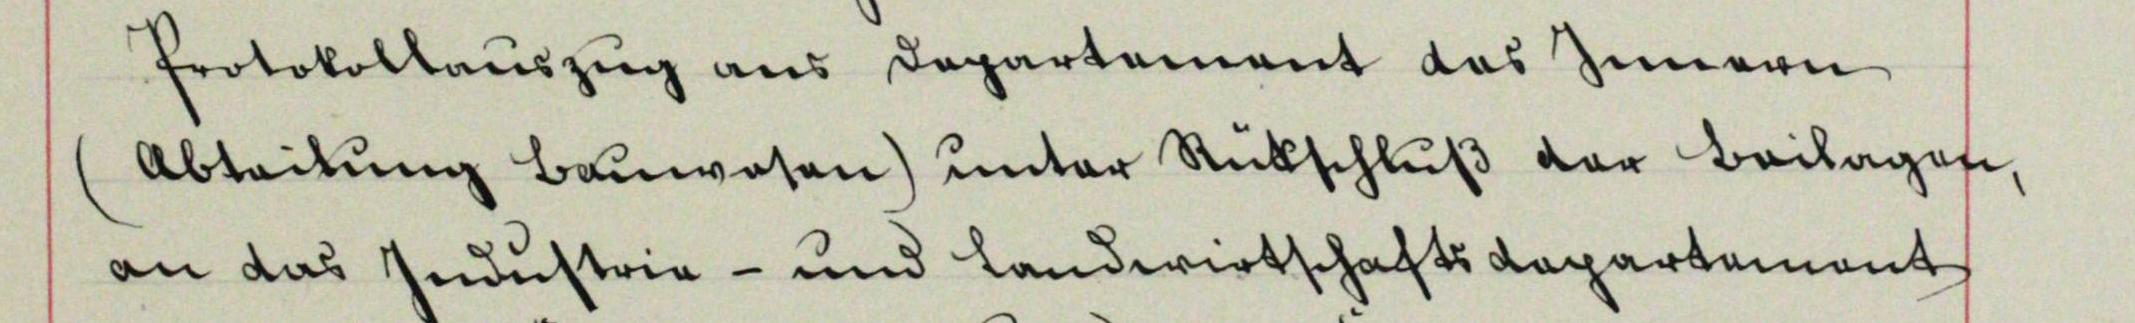 Protokollauszug ans Departement des Innern
(Abteilung Bauwesen) unter Rükschluß der Beilagen,
an das Industrie- und Landwirtschaftsdepartement